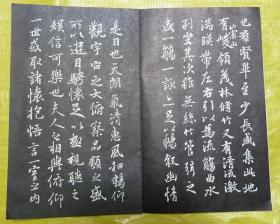 也群賢畢至少長咸集此地
有崇山峻領茂林脩竹又有清流激
湍暎帶左右引以為流觴曲水
列坐其次雖無絲竹管弦之
盛一觴一詠亦足以暢敘幽情
是日也天朗氣清惠風和暢仰
觀宇宙之大俯察品類之盛
所以遊目騁懷足以極視聽之
娛信可樂也夫人之相與俯仰
一世或取諸懷抱悟言一室之內